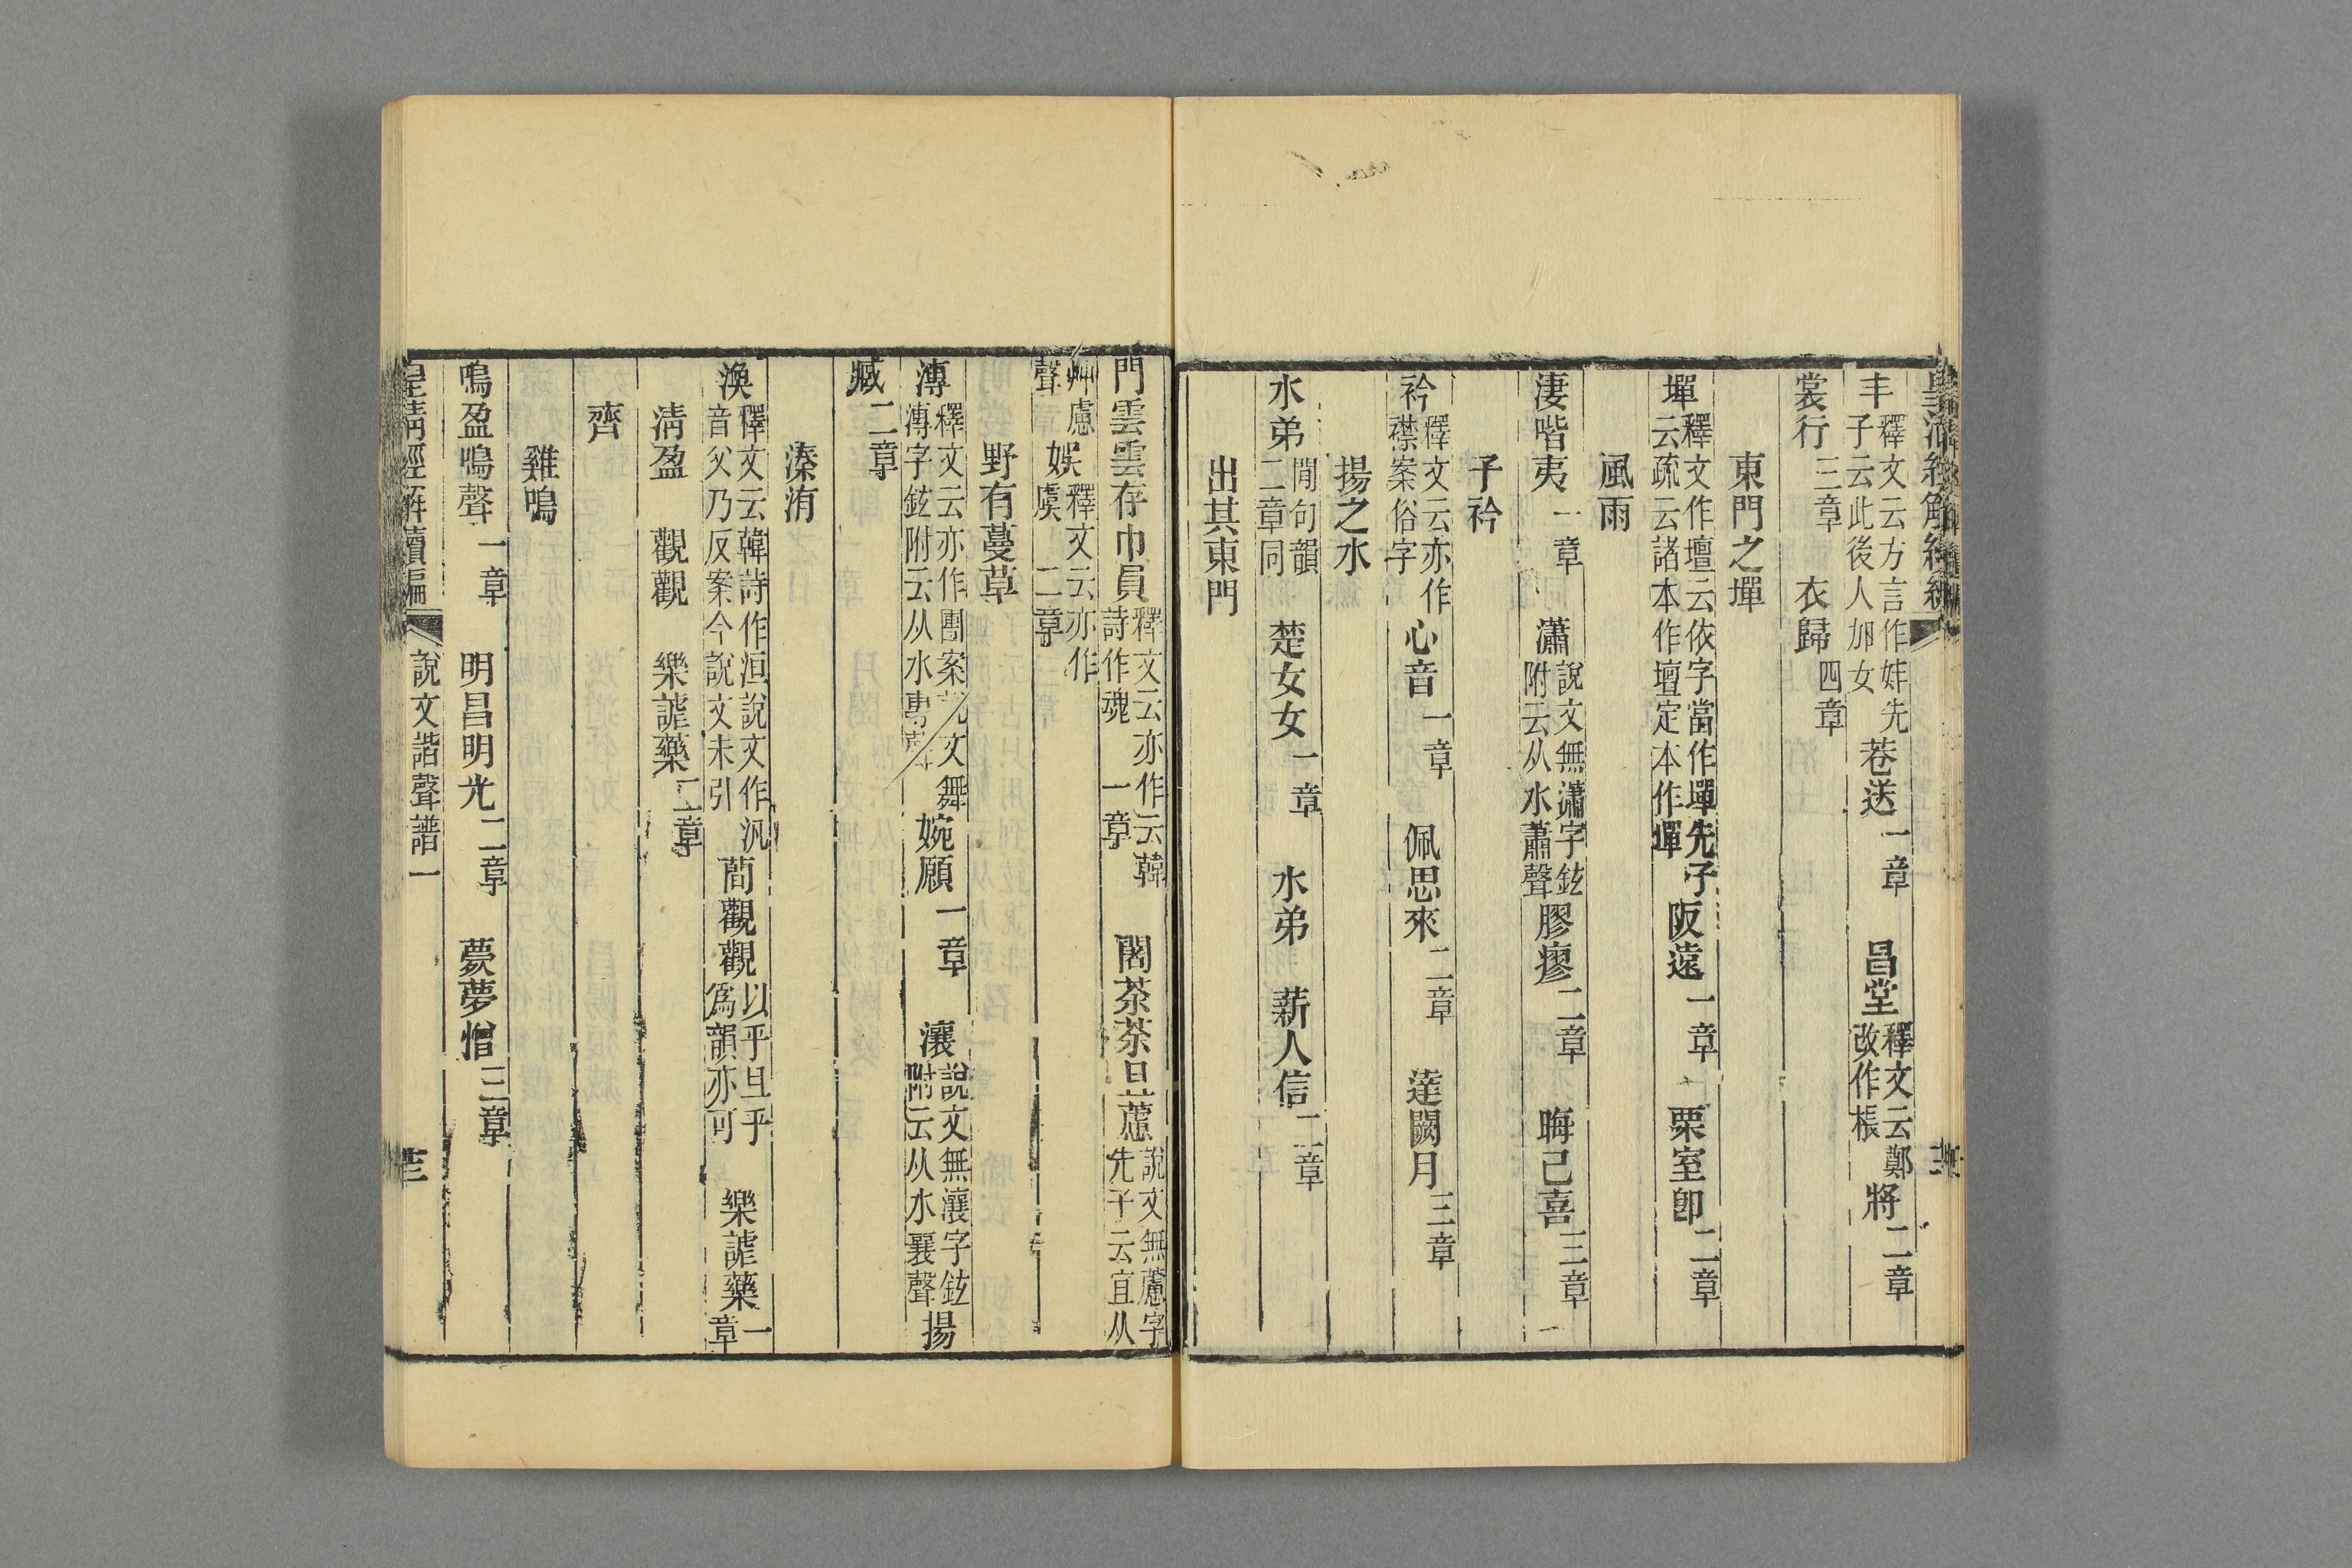 皇清經解續編
丰釋文云方言作妦先子云此後人加女巷送一章　昌堂釋文云鄭改作棖將二章
裳行三章　衣歸四章
東門之墠
墠釋文作壇云依字當作墠先子云疏云諸本作壇定本作墠阪遠一章　栗室卽二章
風雨
淒喈夷一章　瀟說文無瀟字鉉附云从水蕭聲膠瘳二章　晦已喜三章
子衿
衿釋文云亦作襟案俗字心音一章　佩思來二章　達闕月三章
揚之水
水弟閒句韻二章同　楚女女一章　水弟　薪人信二章
出其東門
門雲雲存巾員釋文云亦作云韓詩作魂一章　闍荼荼且藘說文無藘字先子云宜从
艸慮聲娛釋文云亦作虞二章
野有蔓草
漙釋文云亦作團案說文無漙字鉉附云从水專聲婉願一章　瀼說文無瀼字鉉附云从水襄聲揚
臧二章
溱洧
渙釋文云韓詩作洹說文作汎音父乃反案今說文未引蕑觀觀以乎且乎爲韻亦可　樂謔藥一章
淸盈　觀觀　樂謔藥二章
齊
雞鳴
鳴盈鳴聲一章　明昌明光二章　薨夢憎三章
皇淸經解續編　說文諧聲譜一